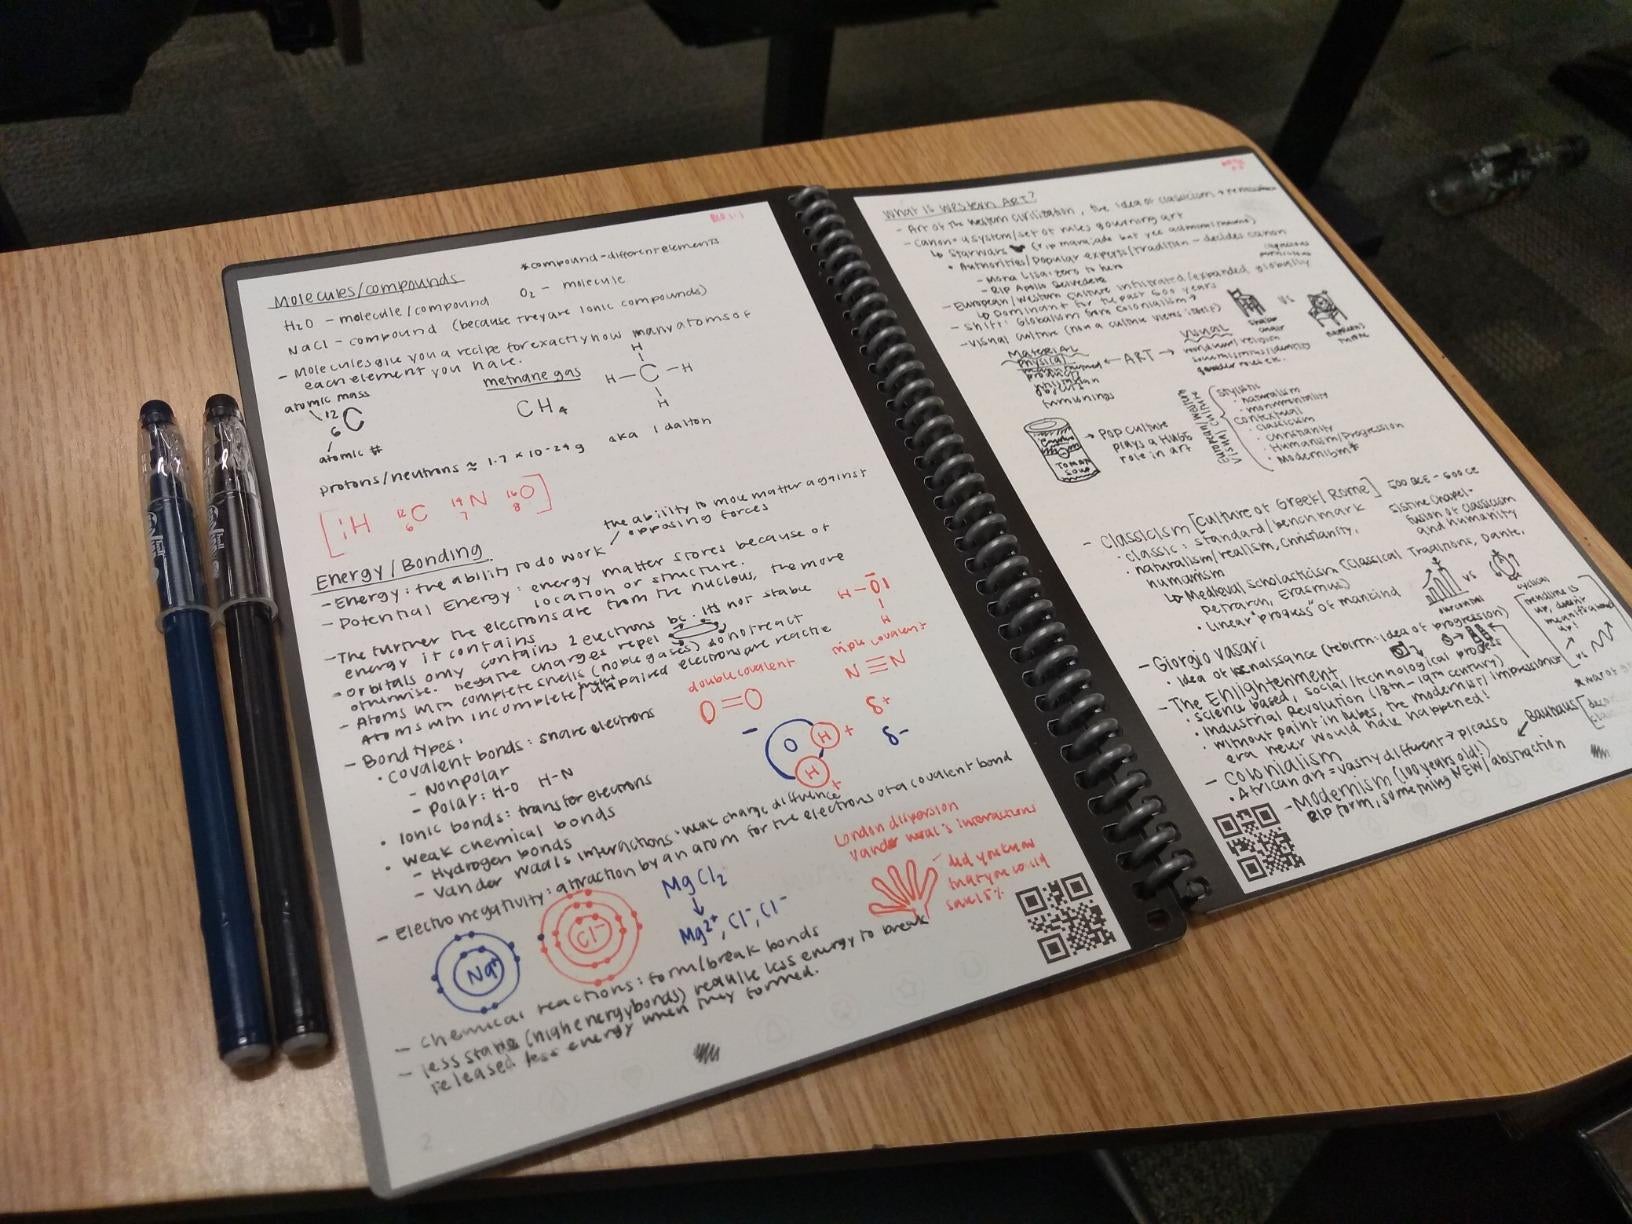 Molecules/compounds
*compound - different elements
H₂O - molecule/compound
O₂ - molecule
NaCl - compound (because they are ionic compounds)
- Molecules give you a recipe for exactly how many atoms of
each element you have.
atomic mass
12
6
C
atomic #
methane gas
CH₄
H
H - C - H
H
protons/neutrons ≈ 1.7 × 10-24 g aka 1 dalton
H
12
6
C
14
7
N
16
8
O
Energy/Bonding
- Energy: the ability to do work
the ability to move matter against
opposing forces
- Potential Energy: energy matter stores because of
location or structure.
- The further the electrons are from the nucleous, the more
energy it contains
- Orbitals only contains 2 electrons bc. its not stable
otherwise. negative charges repel
- Atoms with complete shells (noble gases) do not react
Atoms with incomplete/unpaired electrons are reactive
- Bond types:
• Covalent bonds: share electrons
- Nonpolar
- Polar: H-O H-N
• Ionic bonds: transfer electrons
• weak chemical bonds
- Hydrogen bonds
- Van der waals interactions: weak charge diffirence
- Electronegativity: attraction by an atom for the electrons of a covalent bond
double covalent
O=O
triple covalent
N≡N
δ+
δ-
-
O
H
+
H
+
London dispersion
Vander waal's interactions
did you know
that you could
save 15%
Na+
Cl-
MgCl₂
↓
Mg2+, Cl-, Cl-
- chemical reactions: form/break bonds
- less stable (high energy bonds) require less energy to break
released less energy when they formed.
2
What is Western ART?
- Art of the Western Civilization, the idea of classicism →
- Canon = a system/set of rules governing art
↳ Starwars
• Authorities/Popular experts/tradition - decides canon
- Mona Lisa: zero to hero
- RIP Apollo Belvedere
- European/Western Culture infiltrated/expanded globally
↳ Dominant for the past 600 years
- Shift: Globalism from Colonialism →
- Visual Culture (how a culture views itself)
vs
MATERIAL
physical
objects
furnishings
← ART →
VISUAL
gender roles etc.
TOMATO
SOUP
→ Pop culture
plays a HUGE
role in art
European/Western
Visual Culture
stylistic
• naturalism
• monumentality
Contextual
• classicism
• Christianity
• Humanism/Progression
• Modernism*
- Classicism [culture of Greek/Rome] 500 BCE - 500 CE
• classic: standard/benchmark
• naturalism/realism, Christianity,
humanism
Sistine Chapel -
fusion of classicism
and humanity
↳ Medieval Scholasticism (Classical Traditions, Dante,
Petrarch, Erasmus)
• Linear "progress" of mankind
vs
cyclical
- Giorgio Vasari
• Idea of Renaissance (rebirth: idea of progression)
- The Enlightenment
• Science based, social/technological progress
• Industrial Revolution (18th - 19th century)
• without paint in tubes, the modernist/impressionist
era never would have happened!
- Colonialism
• African art = vastly different → Picasso
Bauhaus
- Modernism (100 years old!)
RIP form, something NEW/abstraction